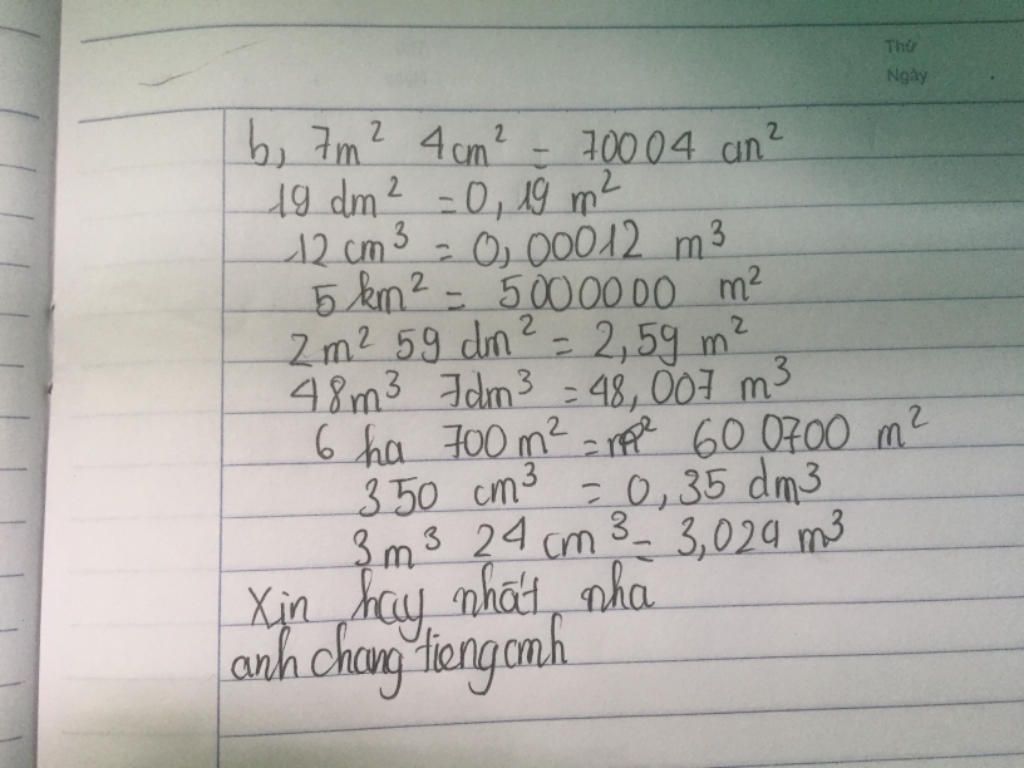 Thứ
Ngày
b, 7m² 4cm² = 70004 cm²
19 dm² = 0,19 m²
12 cm³ = 0,00012 m³
5 km² = 5000000 m²
2m² 59 dm² = 2,59 m²
48m³ 7dm³ = 48,007 m³
6 ha 700 m² = m² 600700 m²
350 cm³ = 0,35 dm3
3m³ 24 cm³ = 3,024 m³
Xin hay nhất nha
anhchangtiengcmh